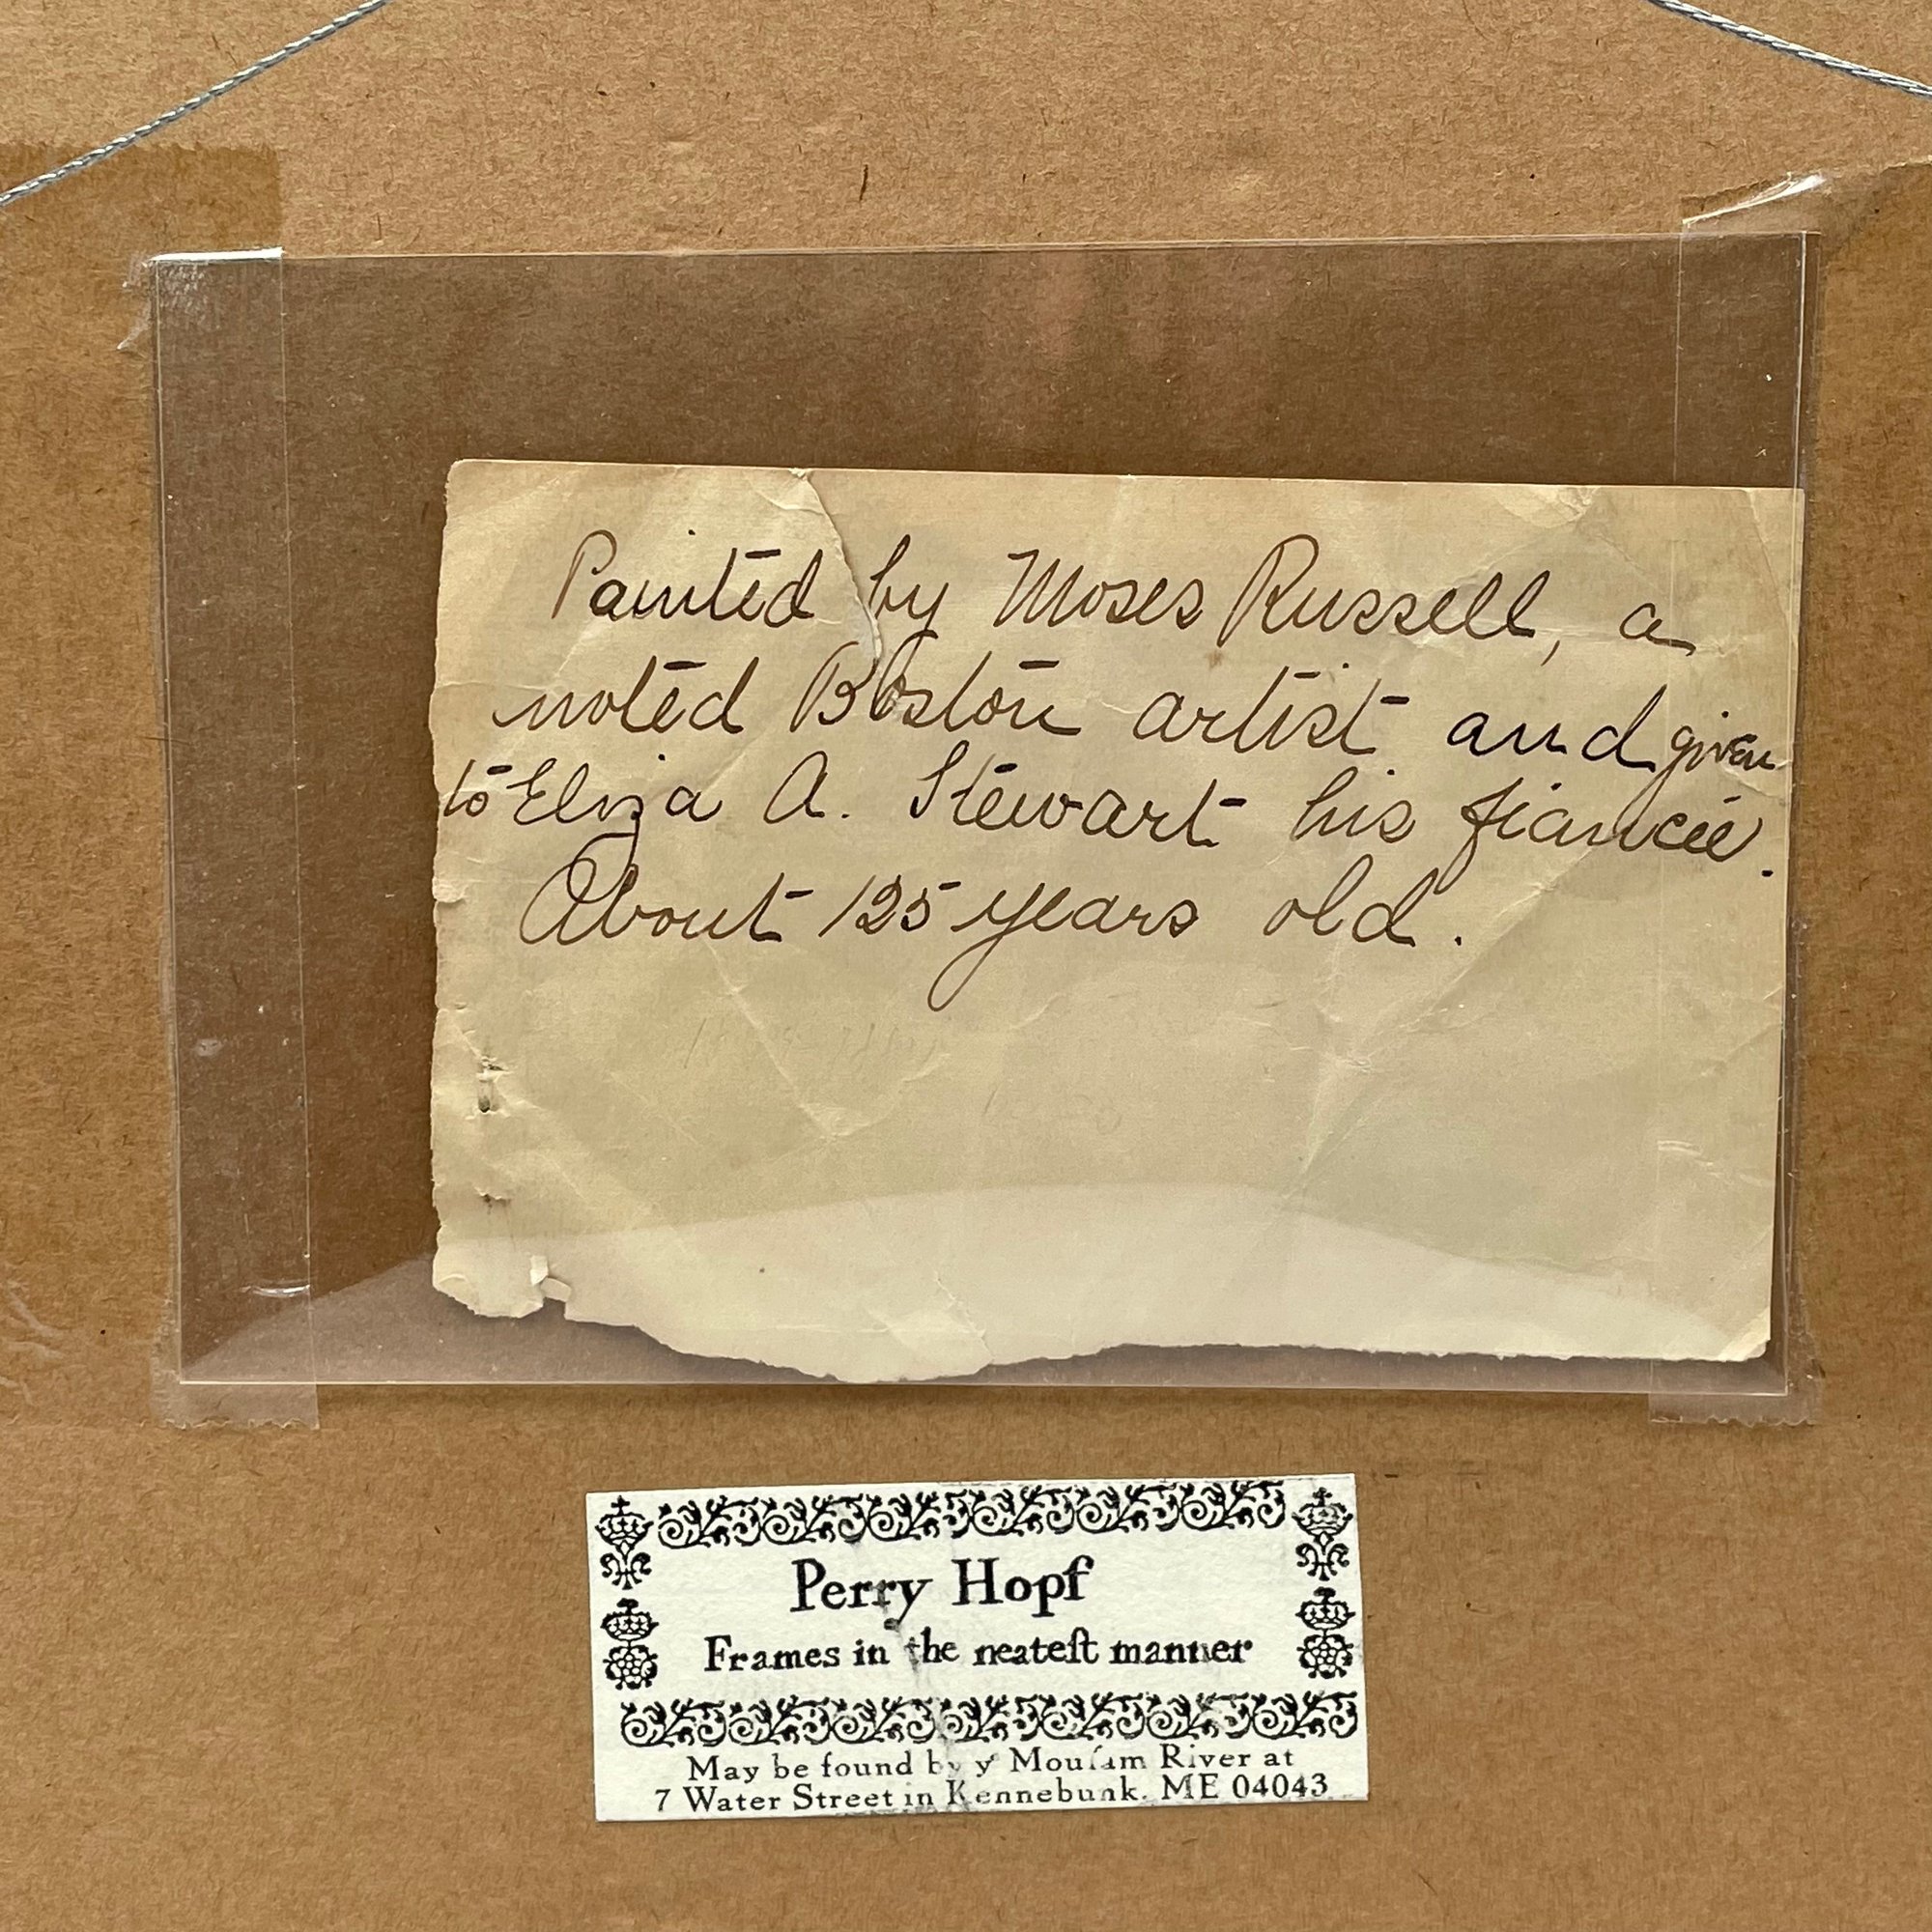 Painted by Moses Russell, a
noted Boston artist and given
to Eliza A. Stewart his fiancée.
About 125 years old.
Perry Hopf
Frames in the neateſt manner
May be found by yᵉ Mouſam River at
7 Water Street in Kennebunk. ME 04043